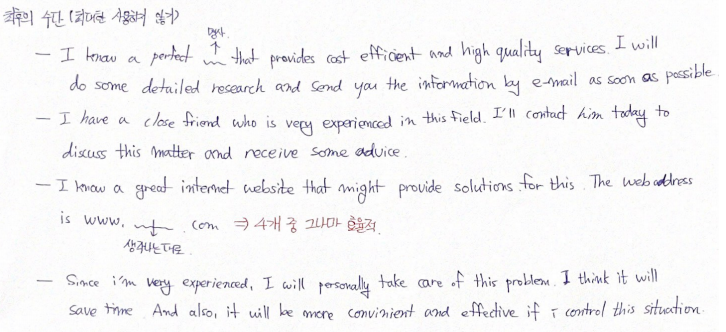 최후의 수단 (최대한 사용하지 않기)
명사.
↑
— I know a perfect ~ that provides cost efficient and high quality services. I will
do some detailed research and send you the information by e-mail as soon as possible.
— I have a close friend who is very experienced in this field. I'll contact him today to
discuss this matter and receive some advice.
— I know a great internet website that might provide solutions for this. The web address
is www. ~ .com ⇒ 4개 중 그나마 효율적.
생각나는대로.
— Since i'm very experienced, I will personally take care of this problem. I think it will
save time. And also, it will be more convinient and effective if I control this situation.